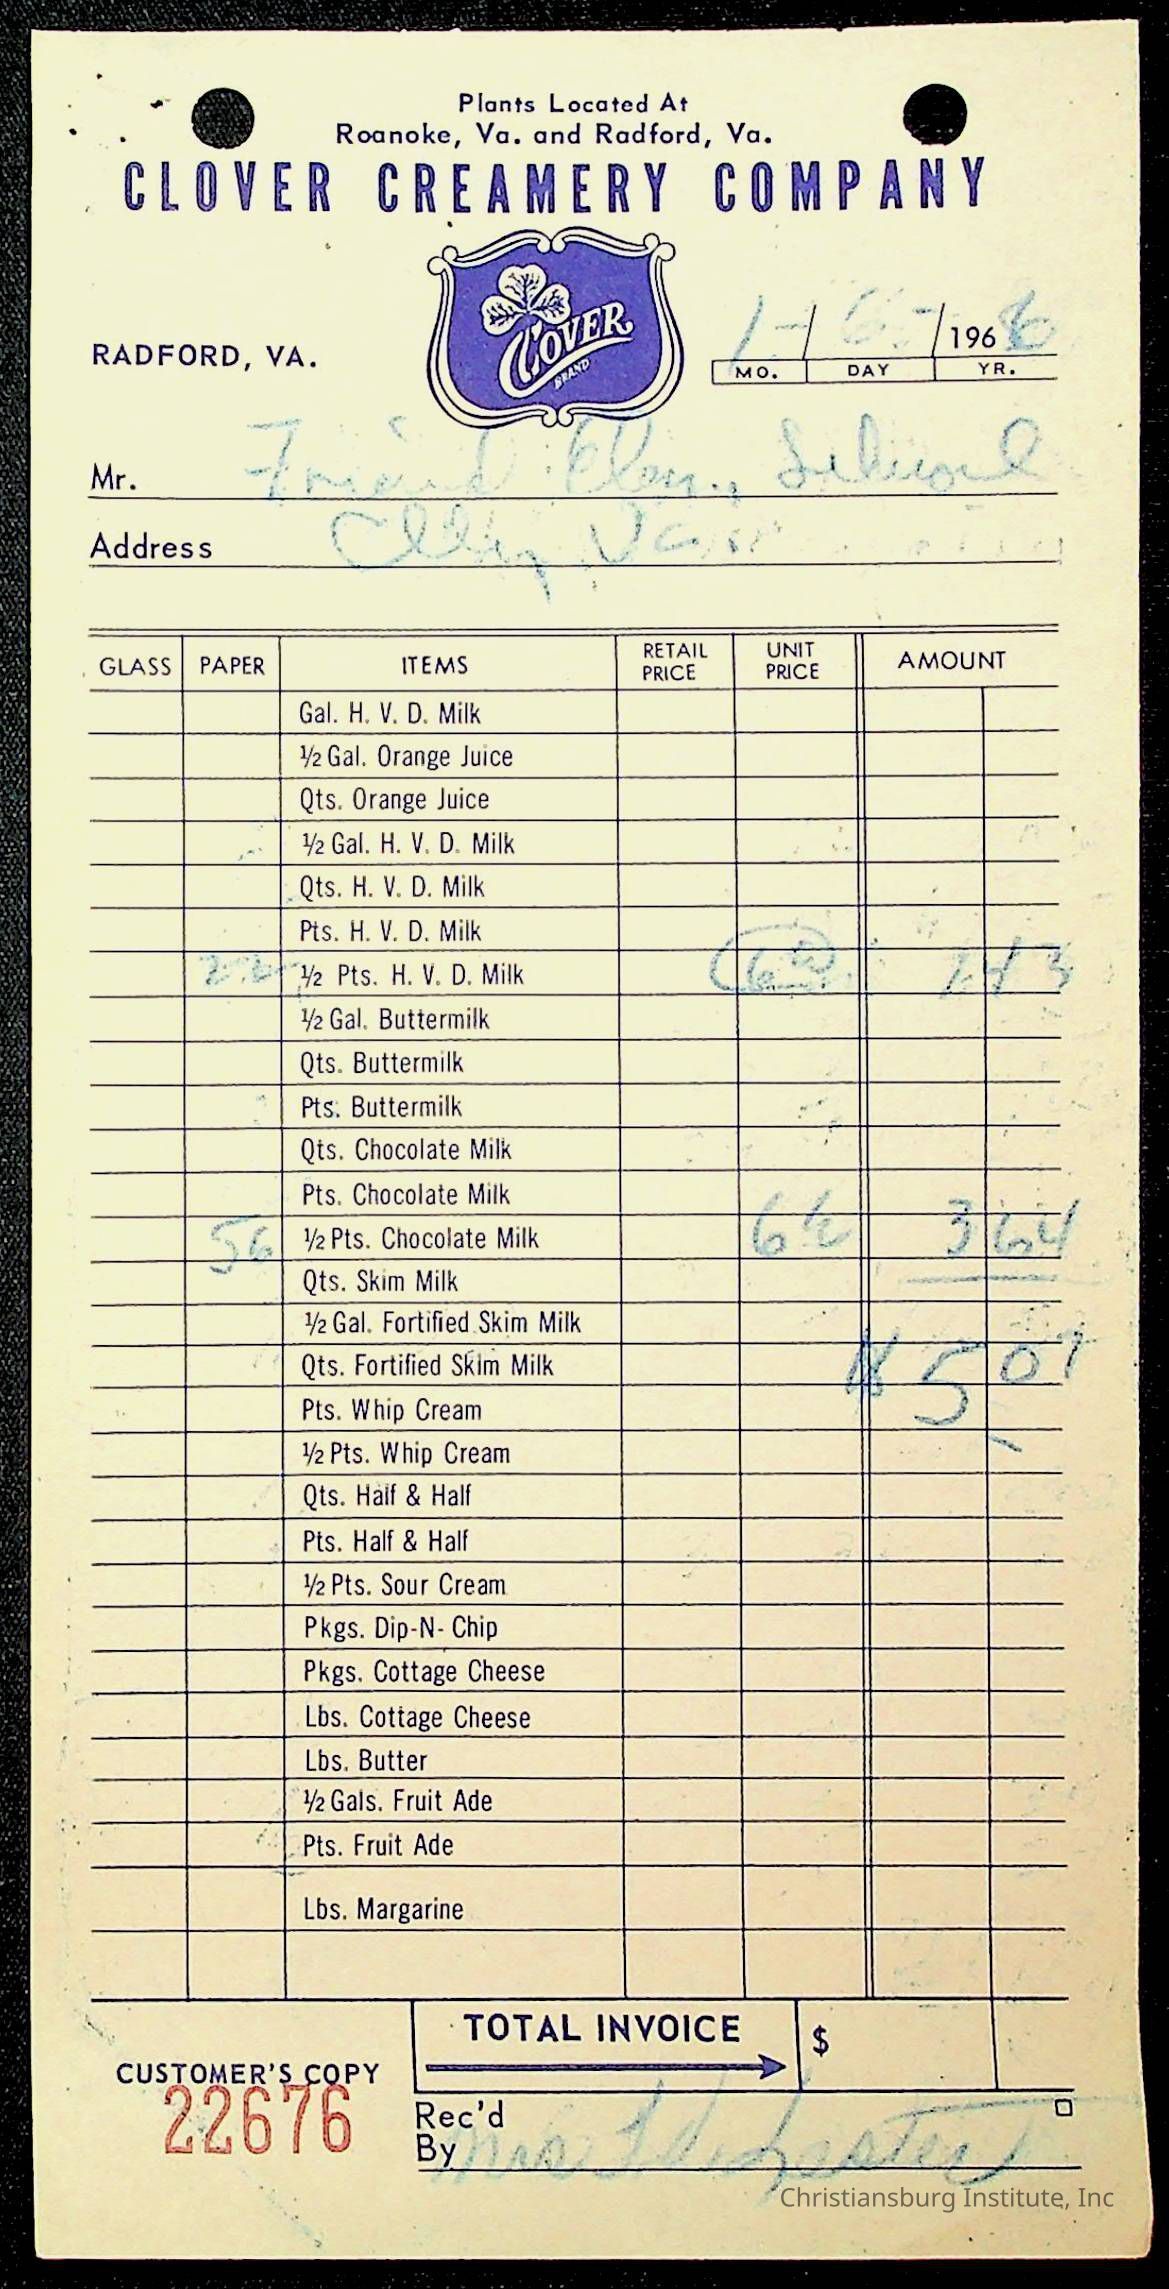 Plants Located At
Roanoke, Va. and Radford, Va.
CLOVER CREAMERY COMPANY
CLOVER
BRAND
RADFORD, VA.
1-/6-/1966
MO. DAY YR.
Mr. Friend Elem. School
Address
GLASS PAPER ITEMS RETAIL PRICE UNIT PRICE AMOUNT
Gal. H. V. D. Milk
½ Gal. Orange Juice
Qts. Orange Juice
½ Gal. H. V. D. Milk
Qts. H. V. D. Milk
Pts. H. V. D. Milk
22 ½ Pts. H. V. D. Milk 6½ 1 43
½ Gal. Buttermilk
Qts. Buttermilk
Pts. Buttermilk
Qts. Chocolate Milk
Pts. Chocolate Milk
56 ½ Pts. Chocolate Milk 6½ 3 64
Qts. Skim Milk
½ Gal. Fortified Skim Milk
Qts. Fortified Skim Milk $5 07
Pts. Whip Cream
½ Pts. Whip Cream
Qts. Half & Half
Pts. Half & Half
½ Pts. Sour Cream
Pkgs. Dip-N-Chip
Pkgs. Cottage Cheese
Lbs. Cottage Cheese
Lbs. Butter
½ Gals. Fruit Ade
Pts. Fruit Ade
Lbs. Margarine
TOTAL INVOICE $
CUSTOMER'S COPY
22676
Rec'd
By Mrs
Christiansburg Institute, Inc